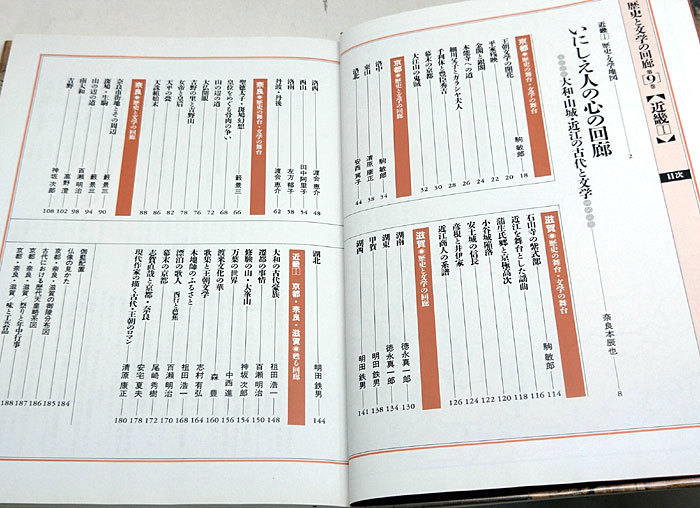 歴史と文学の回廊 第9巻【近畿Ⅰ】
目次
近畿Ⅰ 歴史と文学地図 2
いにしえ人の心の回廊
大和・山城・近江の古代と文学
奈良本辰也 8
京都●歴史の舞台・文学の舞台
駒敏郎
王朝文学の開花 18
平家残映 20
金閣と銀閣 22
本能寺への道 24
細川父子とガラシャ夫人 26
千利休と豊臣秀吉 28
幕末の京都 30
大江山の鬼賊 32
京都●歴史と文学の回廊
洛中 駒敏郎 34
東山 清原康正 38
洛北 安西篤子 44
洛西 渡会恵介 48
西山 田中阿里子 54
洛南 左方郁子 58
丹波・丹後 渡会恵介 62
奈良●歴史の舞台・文学の舞台
藪景三
聖徳太子・斑鳩幻想 66
皇位をめぐる骨肉の争い 68
山の辺の道 72
大仏開眼 74
吉野の里と吉野山 76
女帝と皇后 78
天平の甍 82
天誅組始末 86
奈良●歴史と文学の回廊
奈良市街地とその周辺 88
斑鳩・生駒 藪景三 90
山の辺の道 藪景三 94
飛鳥 百瀬明治 98
南大和 富野澄 102
吉野 神坂次郎 108
滋賀●歴史の舞台・文学の舞台
駒敏郎
石山寺の紫式部 114
近江を舞台とした謡曲 116
蒲生氏郷と京極高次 118
小谷城陥落 120
安土城の信長 122
彦根と井伊家 124
近江商人の系譜 126
滋賀●歴史と文学の回廊
湖南 徳永真一郎 130
湖東 徳永真一郎 134
甲賀 明田鉄男 138
湖西 明田鉄男 141
湖北 明田鉄男 144
近畿Ⅰ 京都・奈良・滋賀●甦る回廊
大和の古代豪族 祖田浩一 148
遷都の事情 百瀬明治 150
修験の山・大峯山 神坂次郎 154
万葉の世界 中西進 156
渡来文化の華 森豊 160
歌集と王朝文学 志村有弘 164
木地師のふるさと 祖田浩一 168
漂泊の歌人 西行と芭蕉 百瀬明治 170
幕末の京都 尾崎秀樹 172
志賀直哉と京都・奈良 安宅夏夫 178
現代作家の描く古代・王朝のロマン 清原康正 180
伽藍配置 184
仏像の見かた 185
京都・奈良・滋賀の御陵分布図 186
古代における歴代天皇略系図 187
京都・奈良・滋賀/祭りと年中行事 188
京都・奈良・滋賀/味と工芸名品